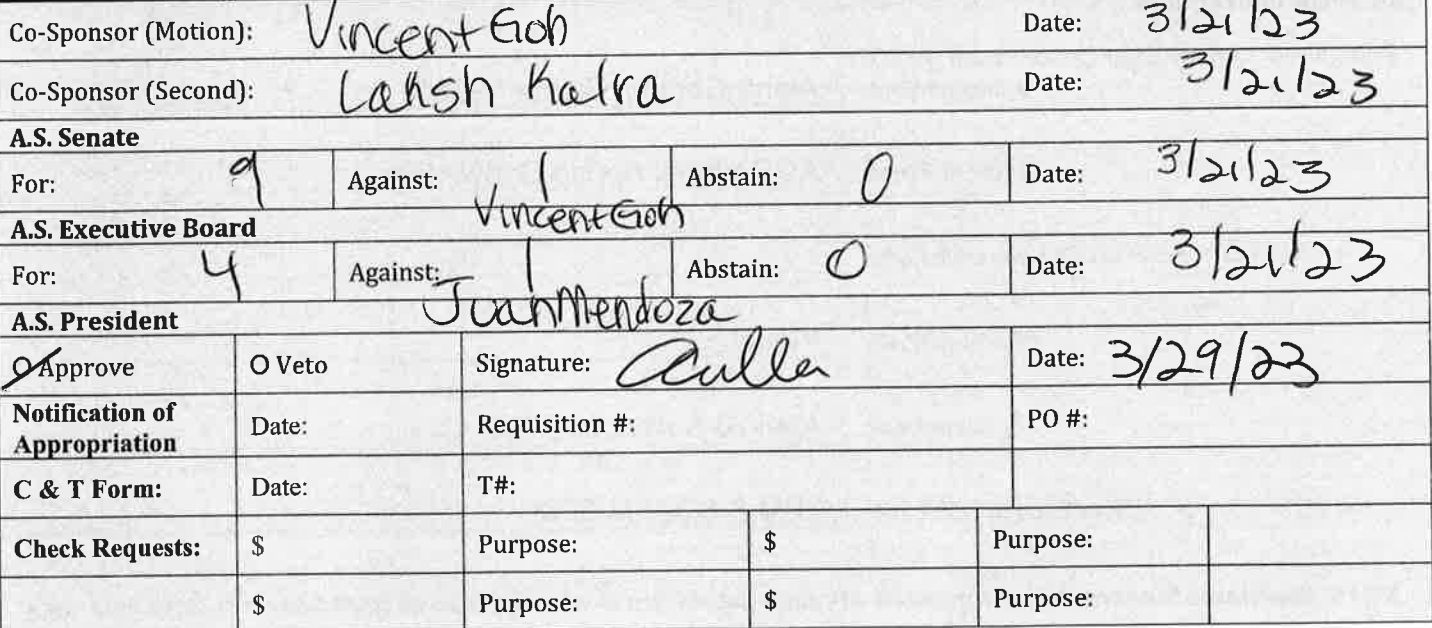 Co-Sponsor (Motion): Vincent Goh Date: 3/21/23
Co-Sponsor (Second): Laksh Kalra Date: 3/21/23
A.S. Senate
For: 9 Against: 1 Abstain: 0 Date: 3/21/23
Vincent Goh
A.S. Executive Board
For: 4 Against: 1 Abstain: 0 Date: 3/21/23
Juan Mendoza
A.S. President
O Approve O Veto Signature: Date: 3/29/23
Notification of
Appropriation Date: Requisition #: PO #:
C & T Form: Date: T#:
Check Requests: $ Purpose: $ Purpose:
$ Purpose: $ Purpose: